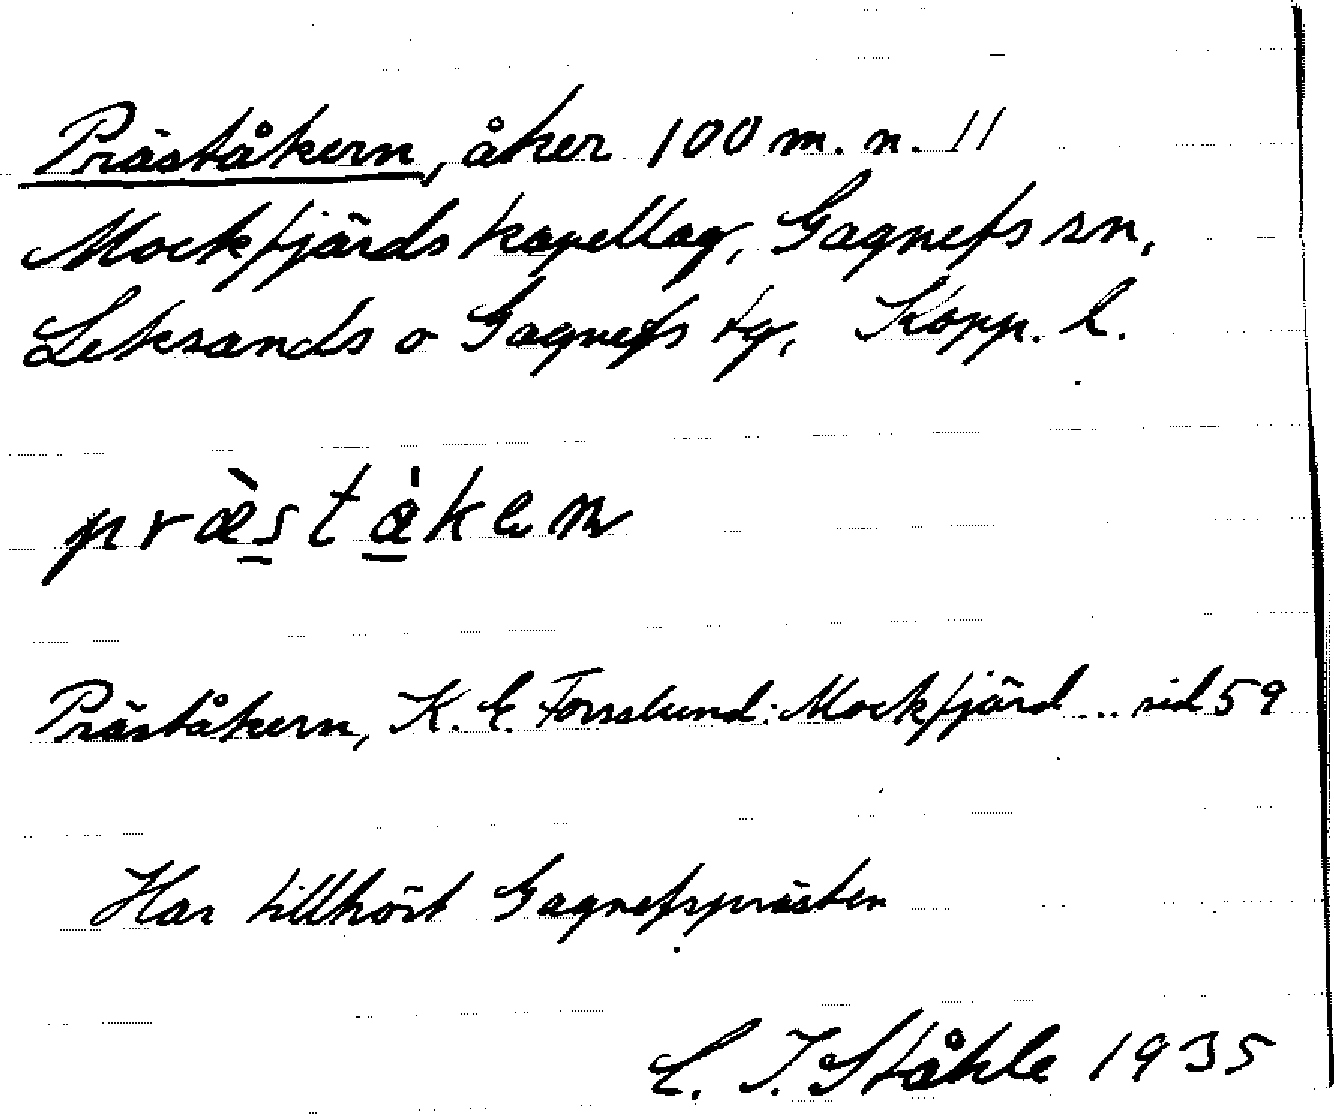 Präståkern, åker 100 m. n. 11
Mockfjärds kapellag, Gagnefs sn,
Leksands o Gagnefs tg, Kopp. l.
præ̀stæ̀ken
Präståkern, K. E. Forsslund: Mockfjärd ... sid 59
Har tillhört Gagnefsprästen
C. I. Ståhle 1935